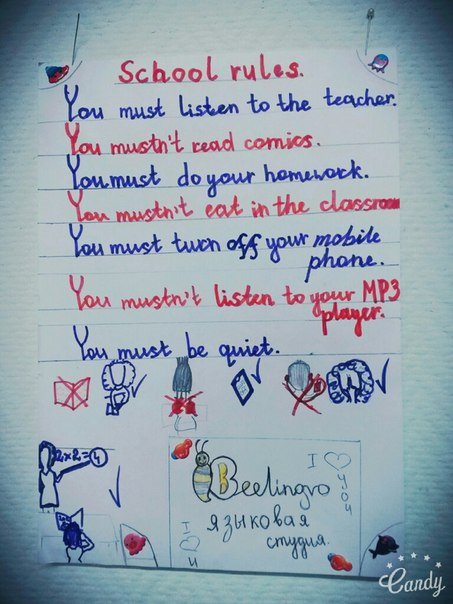 School rules.
You must listen to the teacher.
You mustn't read comics.
You must do your homework.
You mustn't eat in the classroom
You must turn off your mobile
phone.
You mustn't listen to your MP3
player.
You must be quiet.
2x2=4
Beelingvo
языковая
студия.
I ♡
you
I ♡
u
Candy